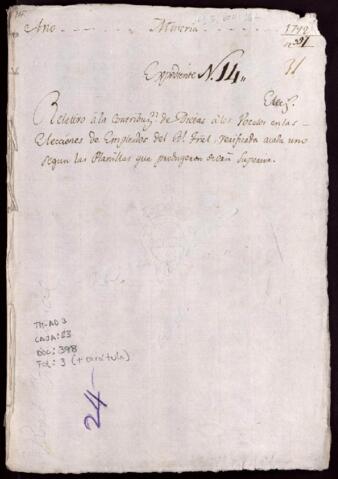 Año Mineria 179
31
Expediente N. 14,,
Relativo a la Contribuz.n de Dietas a los Vocales en las
Elecciones de Empleados del Rl. Tral. verificada cada uno
segun las Planillas que produgeron
TM-AD 3
CAJA: 23
DOC: 398
FOL: 3 (+ carátula)
24